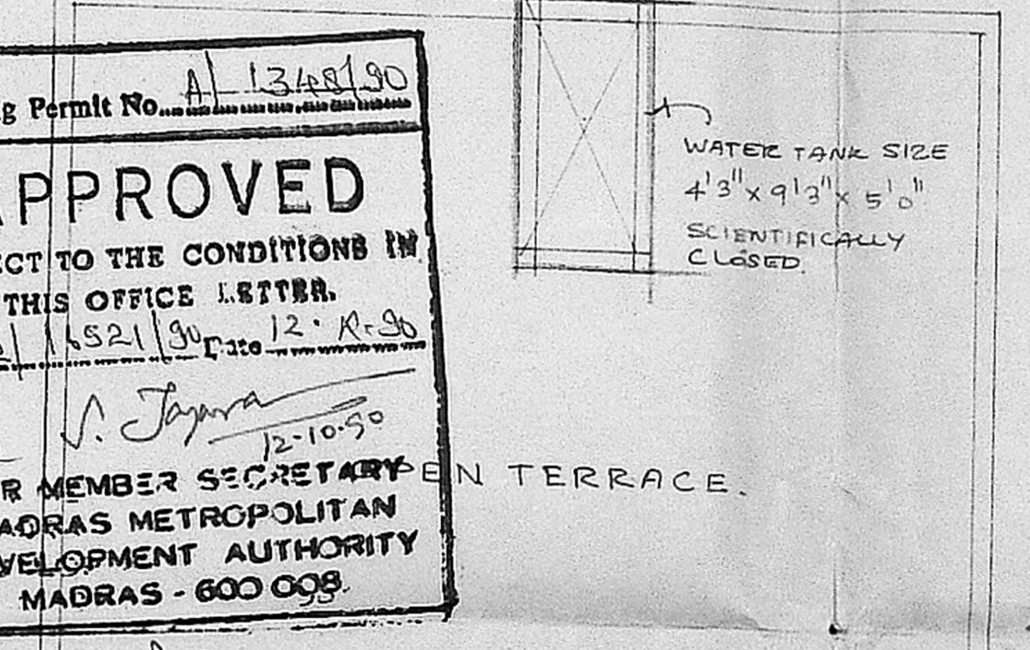 g Permit No. A/ 1348/90
PPROVED
ECT TO THE CONDITIONS IN
THIS OFFICE LETTER.
/ 16521/90 Date 12. -90
12-10-90
R MEMBER SECRETARY
ADRAS METROPOLITAN
VELOPMENT AUTHORITY
MADRAS - 600 008.
WATER TANK SIZE
4'3" x 9'3" x 5'0"
SCIENTIFICALLY
CLOSED.
PEN TERRACE.